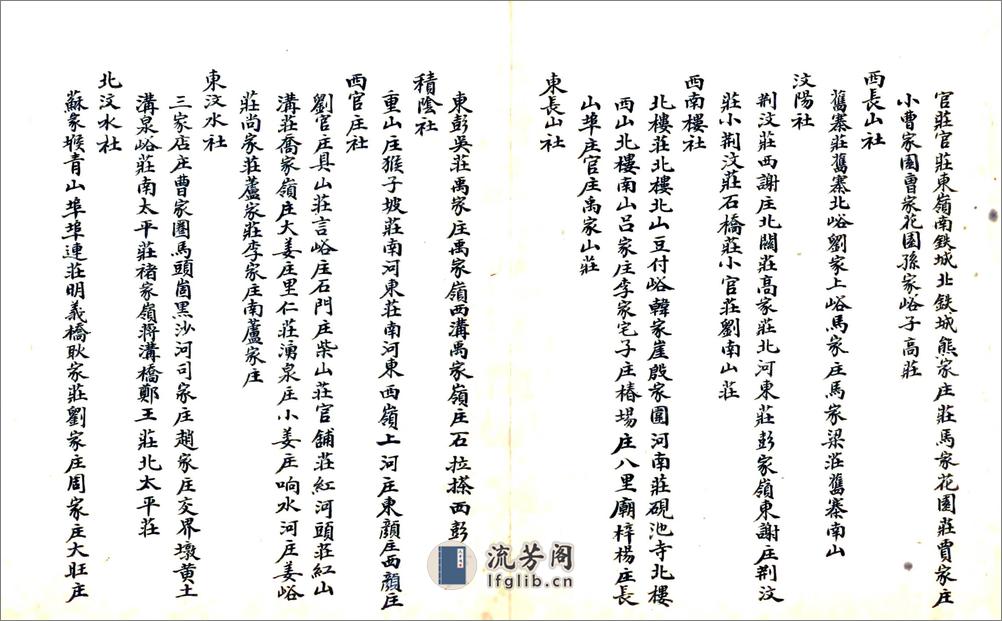 官莊官莊東嶺南鉄城北鉄城熊家庄莊馬家花園莊賈家庄
小曹家園曹家花園孫家峪子高莊
西長山社
舊寨莊舊寨北峪劉家上峪馬家庄馬家梁莊舊寨南山
汶陽社
荆汶莊西謝庄北闊莊高家莊北河東莊彭家嶺東謝庄荆汶
莊小荆汶莊石橋莊小官莊劉南山莊
西南樓社
北樓莊北樓北山豆付峪韓家崖殷家圍河南莊硯池寺北樓
西山北樓南山呂家庄李家宅子庄椿場庄八里廟梓楊庄長
山埠庄官庄禹家山莊
東長山社
東彭吳莊禹家庄禹家嶺西溝禹家嶺庄石拉搽西彭
積陰社
重山庄猴子坡莊南河東莊南河東西嶺上河庄東顔庄西顔庄
西官庄社
劉官庄具山莊言峪庄石門庄柴山莊官舗莊紅河頭莊紅山
溝莊喬家嶺庄大姜庄里仁莊湧泉庄小姜庄响水河庄姜峪
莊尚家莊蘆家莊李家庄南蘆家庄
東汶水社
三家店庄曹家圏馬頭崮黒沙河司家庄趙家庄交界墩黄土
溝泉峪莊南太平莊褚家嶺蒋溝橋鄭王莊北太平莊
北汶水社
蘇家堠青山埠埠連莊明義橋耿家莊劉家庄周家庄大旺庄
流芳阁
lfglib.cn